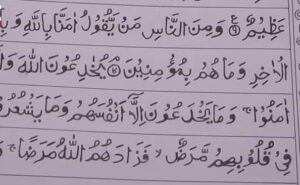 عَظِيْمٌ ۝ وَمِنَ النَّاسِ مَنْ يَّقُوْلُ اٰمَنَّا بِاللّٰهِ
الْاٰخِرِ وَمَا هُمْ بِمُؤْمِنِيْنَ ۝ يُخٰدِعُوْنَ اللّٰهَ
اٰمَنُوْا ۚ وَمَا يَخْدَعُوْنَ اِلَّاۤ اَنْفُسَهُمْ وَمَا يَشْعُرُ
فِيْ قُلُوْبِهِمْ مَّرَضٌ ۙ فَزَادَهُمُ اللّٰهُ مَرَضًا ۚ